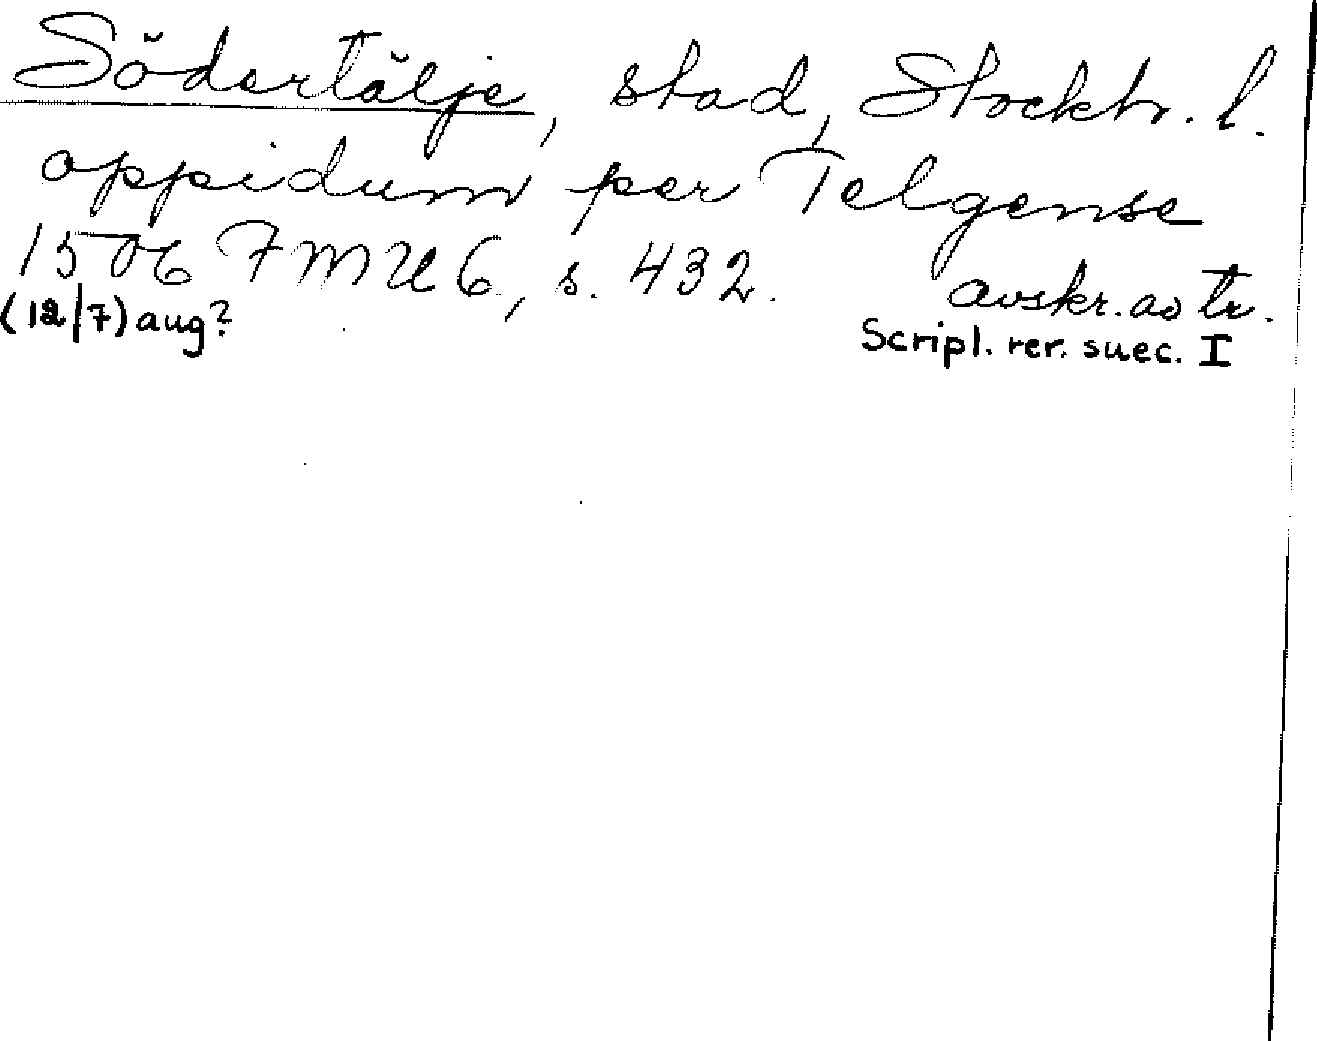 Södertälje, stad, Stockh. l.
oppidum per Telgense
1506 FMU 6, s. 432. avskr. av tr.
(12/7) aug? Script. rer. suec. I